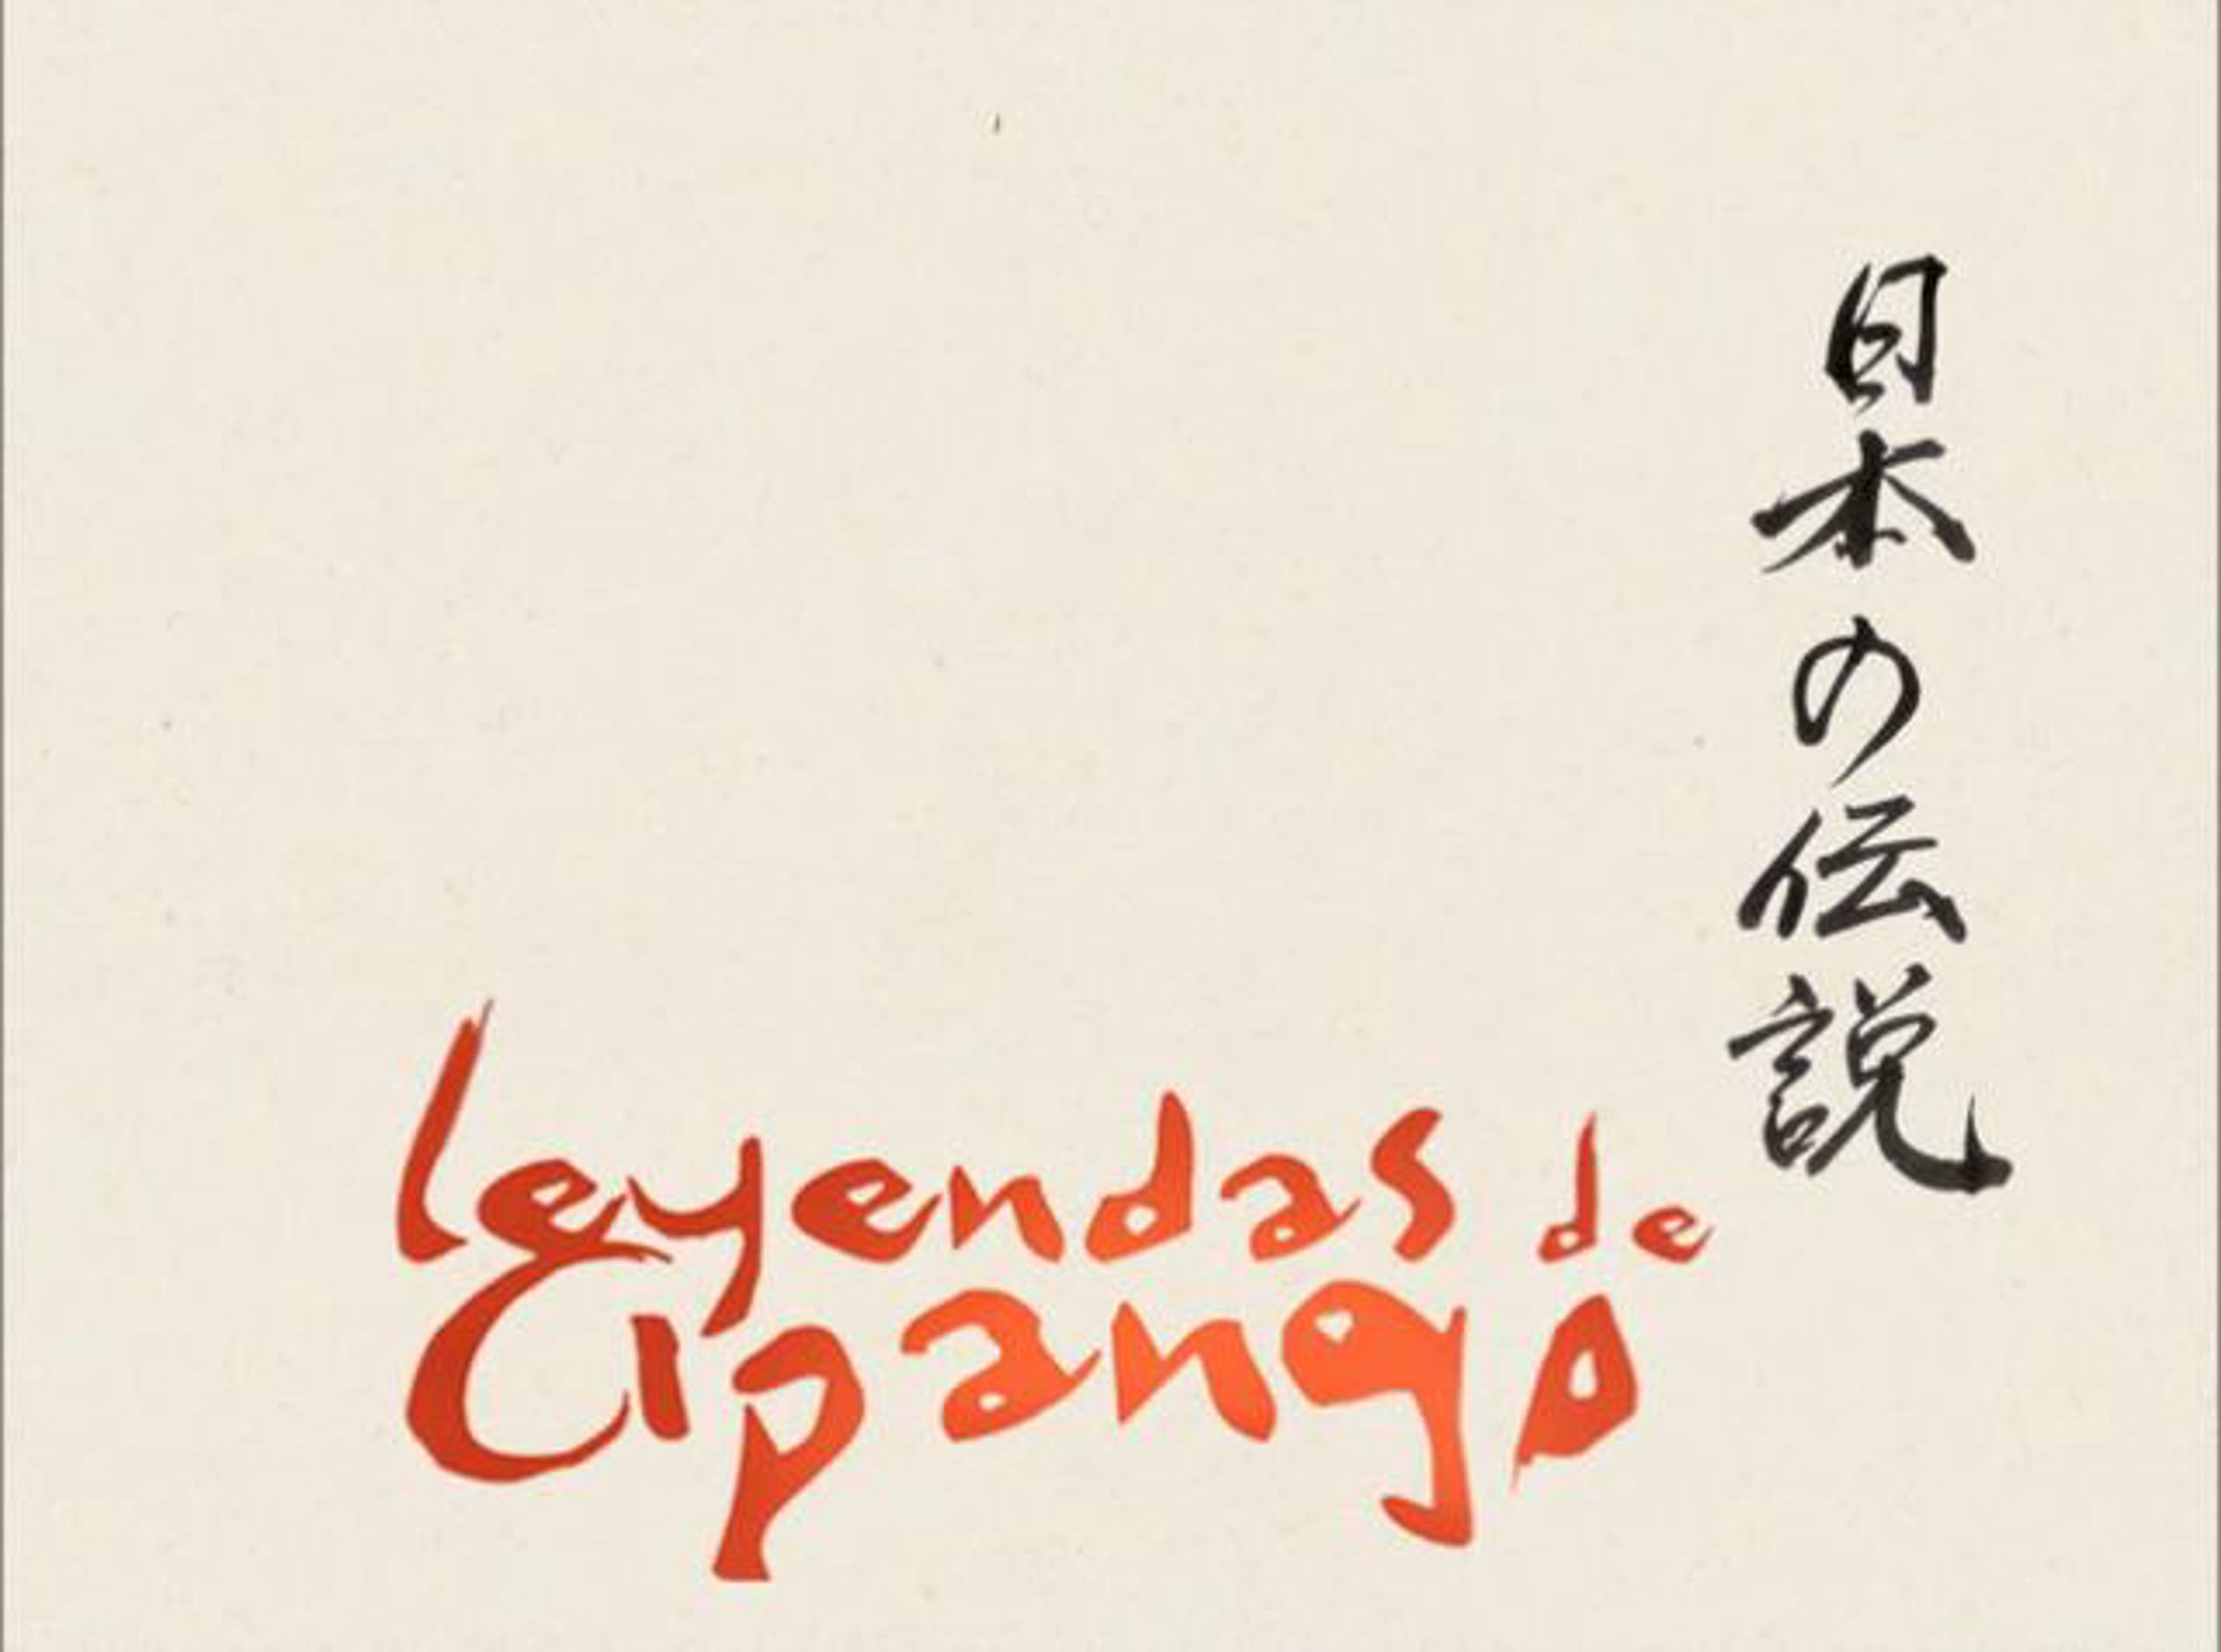 日本の伝説
Leyendas de
Cipango